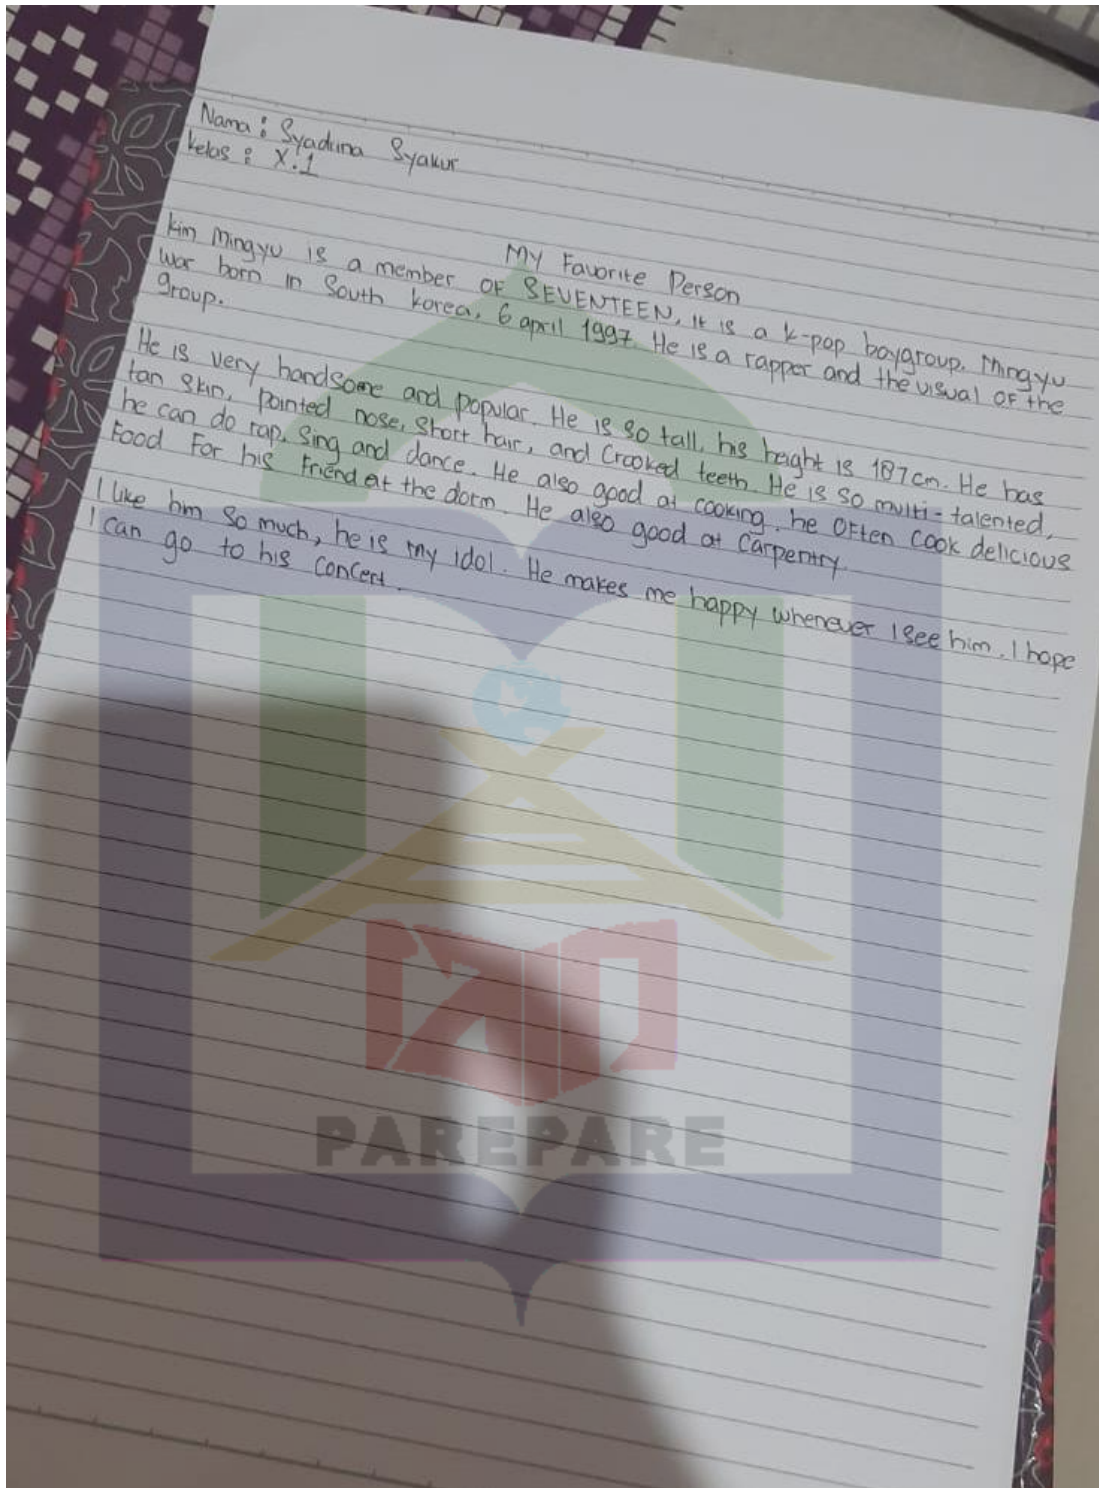 Nama : Syadiina Syakur
kelas : X.1
My Favorite Person
kim Mingyu is a member OF SEVENTEEN, it is a k-pop boygroup. Mingyu
war born in South korea, 6 april 1997. He is a rapper and the visual OF the
group.
He is very handsome and popular. He is so tall, his height is 187 cm. He has
tan skin, pointed nose, short hair, and Crooked teeth. He is so multi-talented,
he can do rap, sing and dance. He also good at cooking, he OFten cook delicious
Food For his Friend at the dorm. He also good at Carpentry.
I like him so much, he is my idol. He makes me happy whenever I see him. I hope
I can go to his concert.
PAREPARE